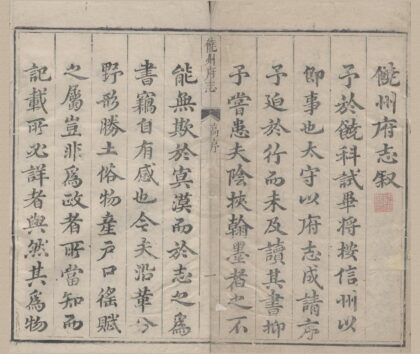 饒州府志叙
予於饒科試畢將按信州以
卽事也太守以府志成請序
予迫於行而未及讀其書抑
予嘗患夫陰挾翰墨者之不
饒州府志
舊序
一
能無欺於寞漠而於志之爲
書竊自有感也今夫沿革分
野形勝土俗物產戸口徭賦
之屬豈非爲政者所當知而
記載所必詳者與然其爲物